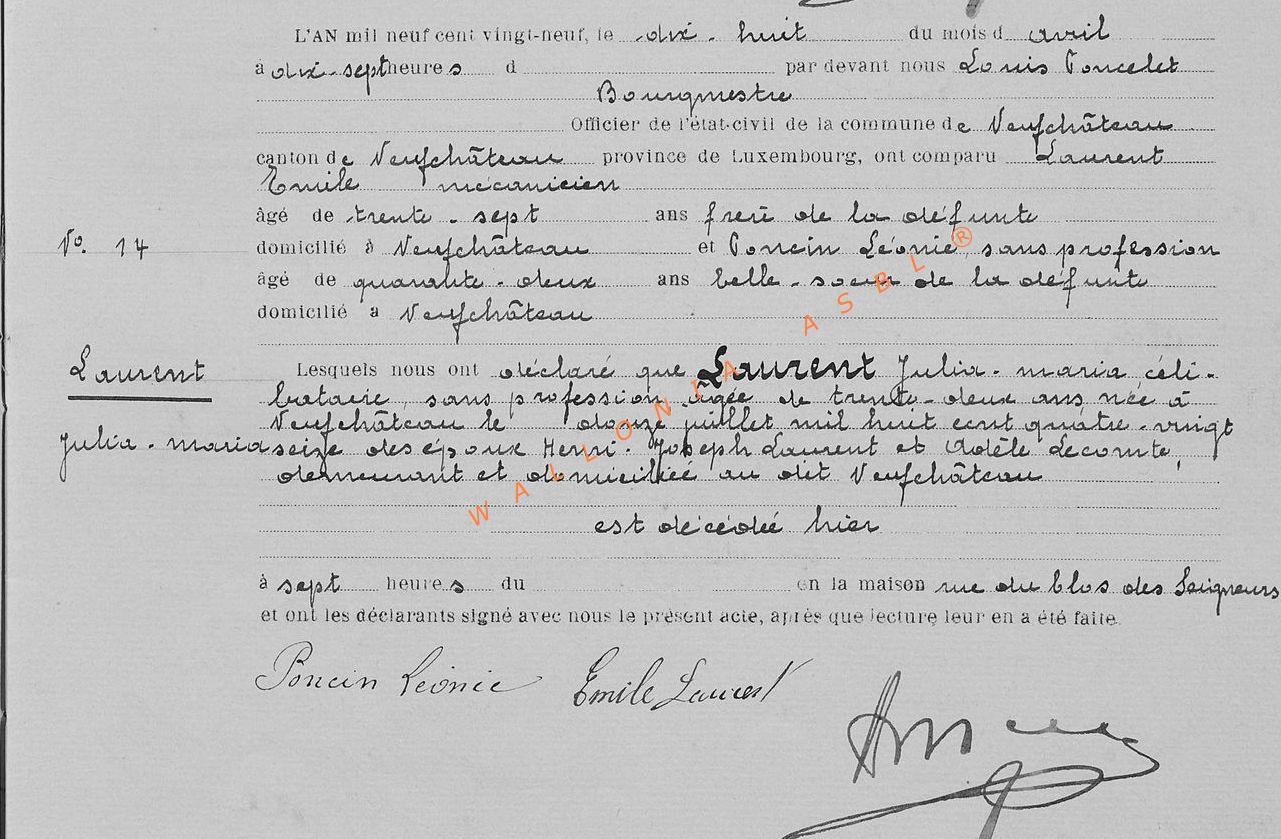 L'AN mil neuf cent vingt-neuf, le dix-huit du mois d avril
à dix-sept heures d par devant nous Louis Poncelet
Bourgmestre
Officier de l'état-civil de la commune de Neufchâteau
canton de Neufchâteau province de Luxembourg, ont comparu Laurent
Emile mécanicien
âgé de trente-sept ans frère de la défunte
N° 14 domicilié à Neufchâteau et Poncin Léonie, sans profession
âgé de quarante-deux ans belle-soeur de la défunte
domicilié à Neufchâteau
Laurent Lesquels nous ont déclaré que Laurent Julia-maria céli-
bataire, sans profession âgée de trente-deux ans née à
Neufchâteau le douze juillet mil huit cent quatre-vingt
Julia-maria seize des époux Henri-Joseph Laurent et Adèle Lecomte,
demeurant et domiciliée au dit Neufchâteau
est décédée hier
à sept heures du en la maison rue du Clos des Seigneurs
et ont les déclarants signé avec nous le présent acte, après que lecture leur en a été faite.
Poncin Léonie Emile Laurent
WALLONIA ASBL ®